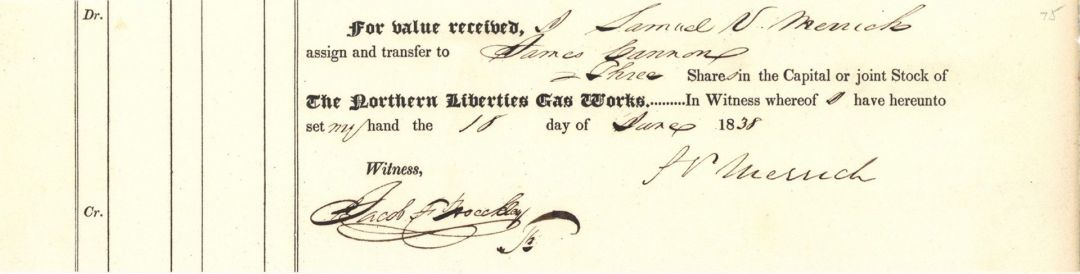 Dr.
75
For value received, I Samuel V. Merrick
assign and transfer to James Cannon
Three Shares in the Capital or joint Stock of
The Northern Liberties Gas Works..........In Witness whereof I have hereunto
set my hand the 18 day of June 1838
S V Merrick
Witness,
Cr.
Jacob F